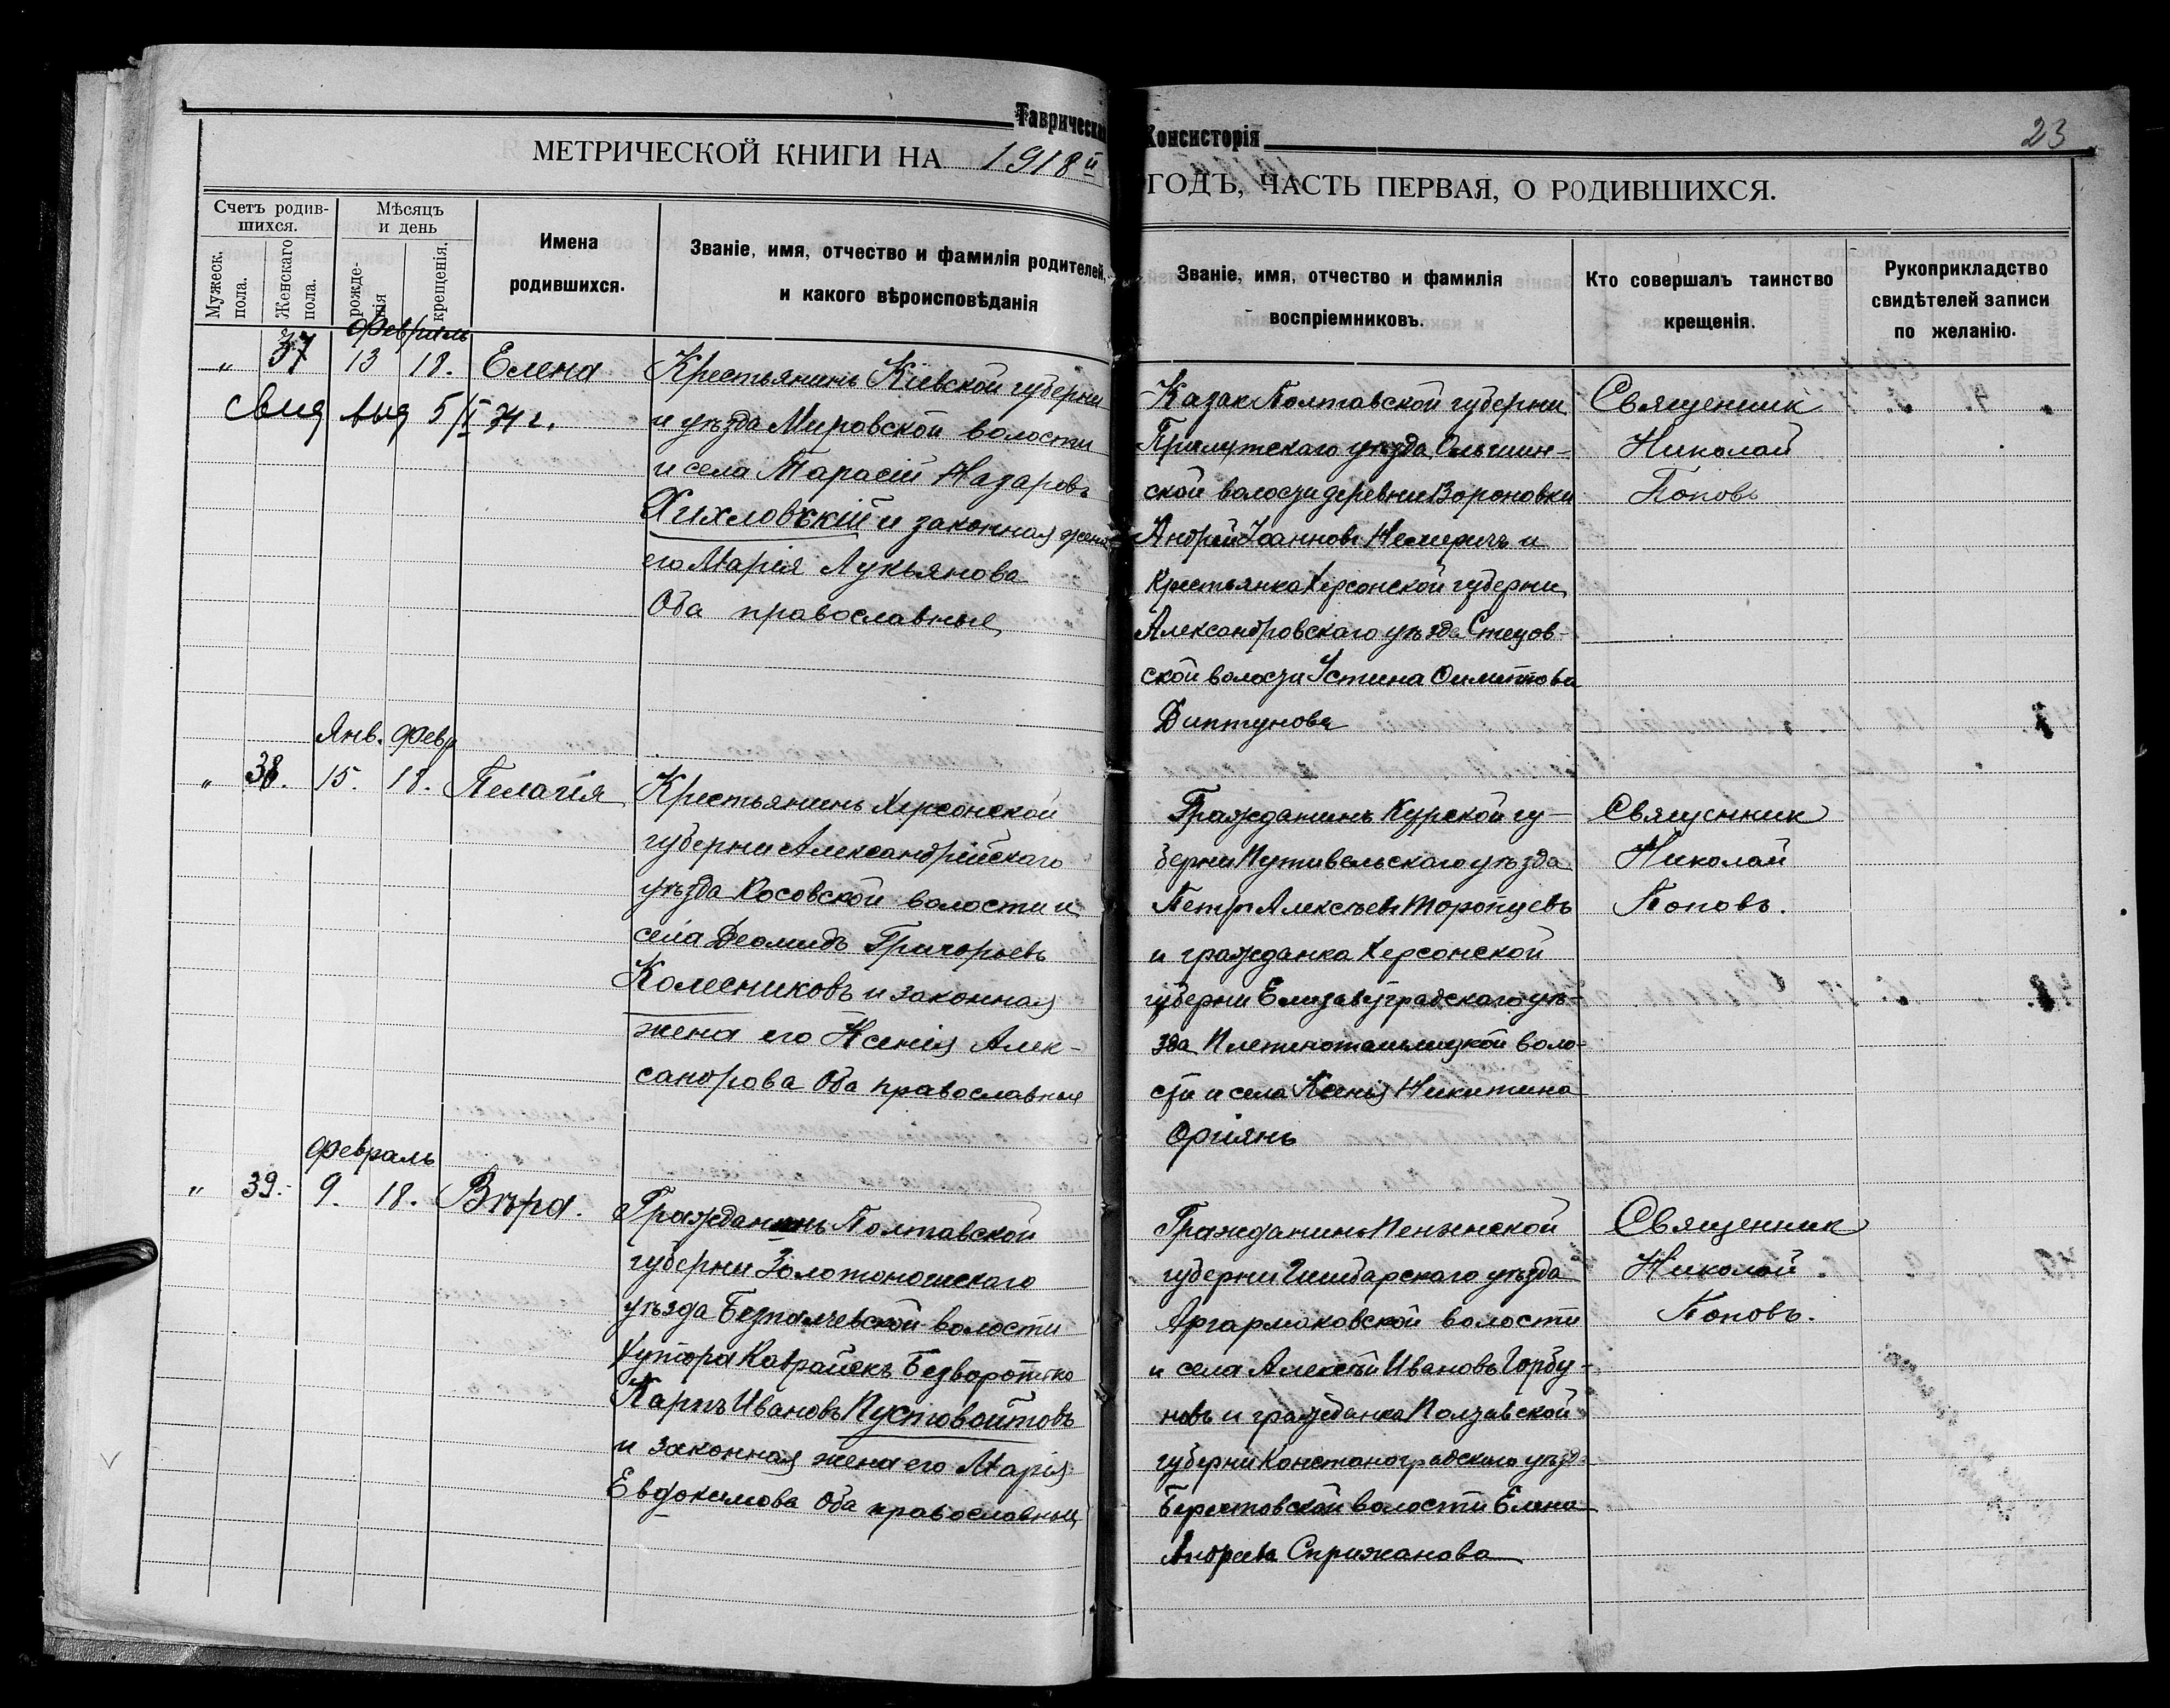 Таврическая Консисторія
23
МЕТРИЧЕСКОЙ КНИГИ НА 1918й ГОДЪ, ЧАСТЬ ПЕРВАЯ, О РОДИВШИХСЯ.
Счетъ родив-
шихся.
Мужеск.
пола.
Женскаго
пола.
Мѣсяцъ
и день
рожде-
нія
крещенія.
Имена
родившихся.
Званіе, имя, отчество и фамилія родителей,
и какого вѣроисповѣданія
Званіе, имя, отчество и фамилія
воспріемниковъ.
Кто совершалъ таинство
крещенія.
Рукоприкладство
свидѣтелей записи
по желанію.
Февраль
„ 37 13 18. Елена
Свид выд 5/I
Крестьянинъ Кіевской губерни
и уѣзда Мировской волости
и села Тарасій Назаровъ
Хихловскій и законная жена
его Марія Лукьянова
Оба православные
Казак Полтавской губерни
Прилутскаго уѣзда Ольшин-
ской волости деревни Вороновки
Андрей Іоанновъ и
Крестьянка Херсонской губерни
Александровскаго уѣзда Стецов-
ской волости Устина
Диптунова
Священник
Николай
Поповъ
Янв. Февр
„ 38. 15. 18. Пелагія
Крестьянинъ Херсонской
губерни Александрійскаго
уѣзда Косовской волости и
села Деомидъ Григорьевъ
Колесниковъ и законная
жена его Ксенія Алек-
сандрова Оба православные
Гражданинъ Курской гу-
берни Путивельскаго уѣзда
Петръ Алексѣевъ Торопцевъ
и гражданка Херсонской
губерни Елизаветградскаго уѣ-
зда Плетеноташлицкой воло-
сти и села Ксенія Никитина
Оргіянъ
Священник
Николай
Поповъ.
Февраль
„ 39. 9. 18. Вѣра.
Гражданинъ Полтавской
губерни Золотоношскаго
уѣзда Безпалчевской волости
хутора Каврайскъ
Карпъ Ивановъ Пустовойтовъ
и законная жена его Марія
Евдокимова Оба православные
Гражданинъ Пензенской
губерни Чембарскаго уѣзда
Аргамаковской волости
и села Алексѣй Ивановъ Горбу-
новъ и гражданка Полтавской
губерни Константиноградскаго уѣзд
Берестовской волости Елена
Андреева Стрижанова
Священник
Николай
Поповъ.